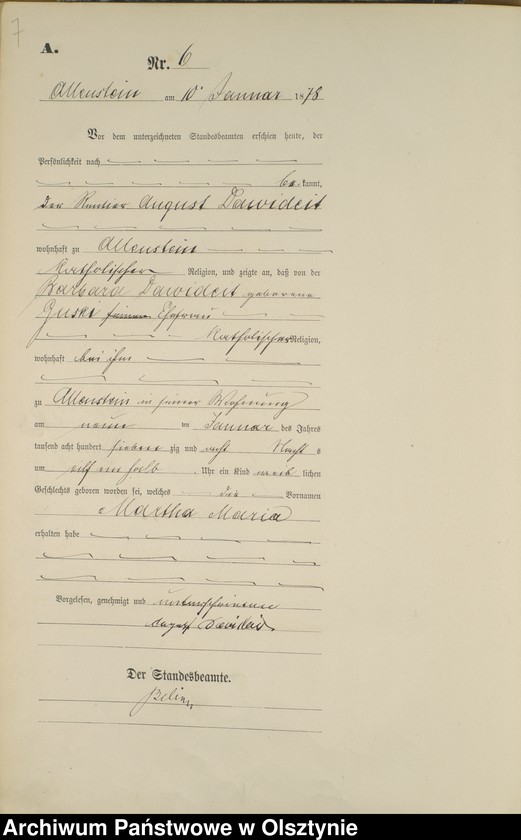 7
A.
Nr. 6
Allenstein am 10 Januar 1878
Vor dem unterzeichneten Standesbeamten erschien heute, der
Persönlichkeit nach
be kannt,
der Rentier August Dawideit
wohnhaft zu Allenstein
katholischer Religion, und zeigte an, daß von der
Barbara Dawideit geborene
Guski seiner Ehefrau
katholischer Religion,
wohnhaft bei ihm
zu Allenstein in seiner Wohnung
am neun ten Januar des Jahres
tausend acht hundert sieben zig und acht Nacht s
um elf ein halb Uhr ein Kind weib lichen
Geschlechts geboren worden sei, welches die Vornamen
Martha Maria
erhalten habe
Vorgelesen, genehmigt und unterschrieben
August Dawideit
Der Standesbeamte.
Archiwum Państwowe w Olsztynie